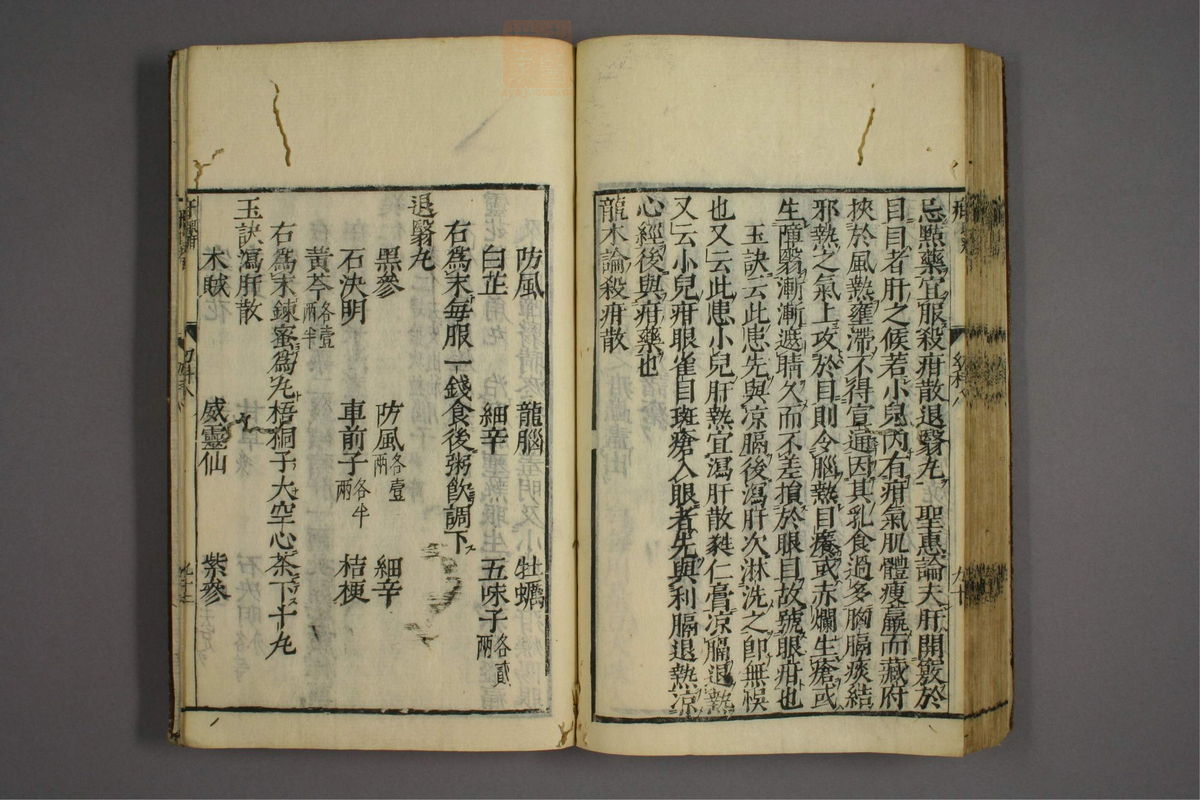 忌點藥宜服殺疳散退翳丸聖惠論夫肝開竅於
目目者肝之候若小兒內有疳氣肌體瘦羸而藏府
挾於風熱壅滯不得宣通因其乳食過多胸膈痰結
邪熱之氣上攻於目則令腦熱目癢或赤爛生瘡或
生障翳漸漸遮睛久而不差損於眼目故號眼疳也
玉訣云此患先與凉膈後瀉肝次淋洗之即無悞
也又云此患小兒肝熱宜瀉肝散蕤仁膏凉膈退熱
又云小兒疳眼雀目斑瘡入眼者先與利膈退熱凉
心經後與疳藥也
龍木論殺疳散
防風 龍腦 牡蠣
白芷 細辛 五味子各貳兩
右為末每服一錢食後粥飲調下
退翳丸
黑參 防風各壹兩 細辛
石決明 車前子各半兩 桔梗
黃芩各壹兩半
右為末鍊蜜為丸梧桐子大空心茶下十丸
玉訣瀉肝散
木賊 威靈仙 紫參